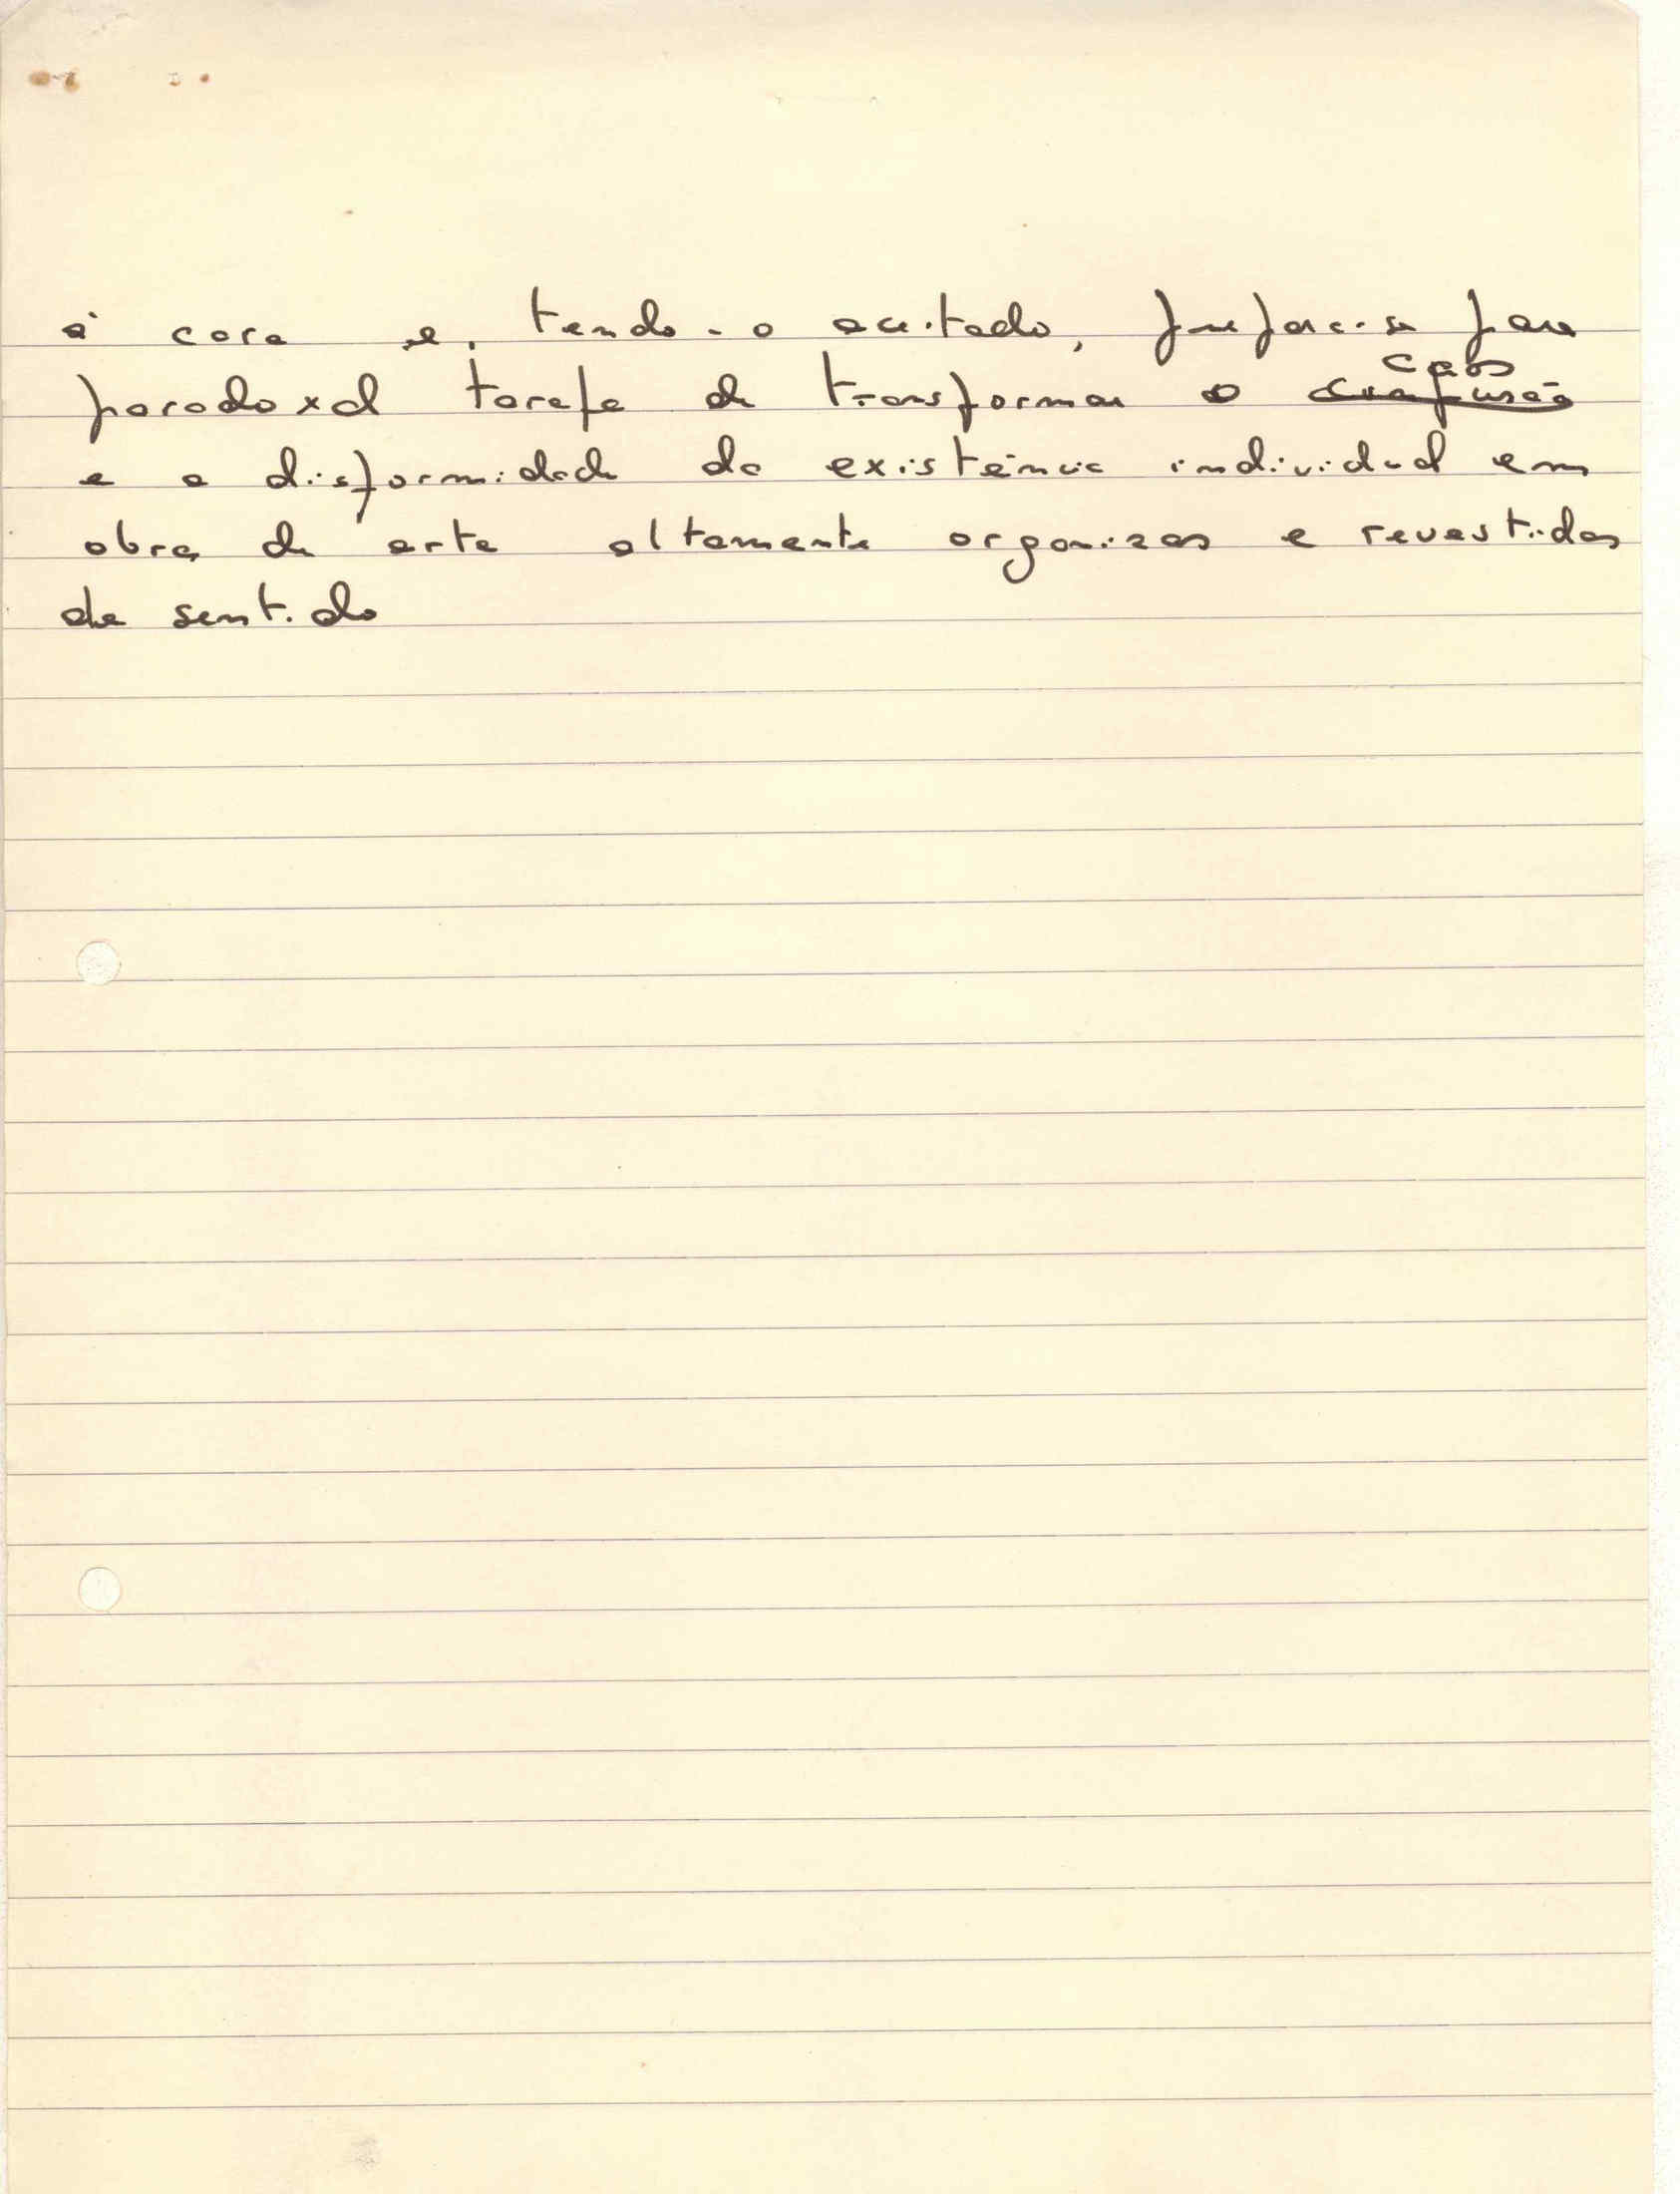 à cara e, tendo-o aceitado, prepara-se para
paradoxal tarefa de transformar o caos confusão
e a disformidade da existência individual em
obras de arte altamente organizas e revestidas
de sentido